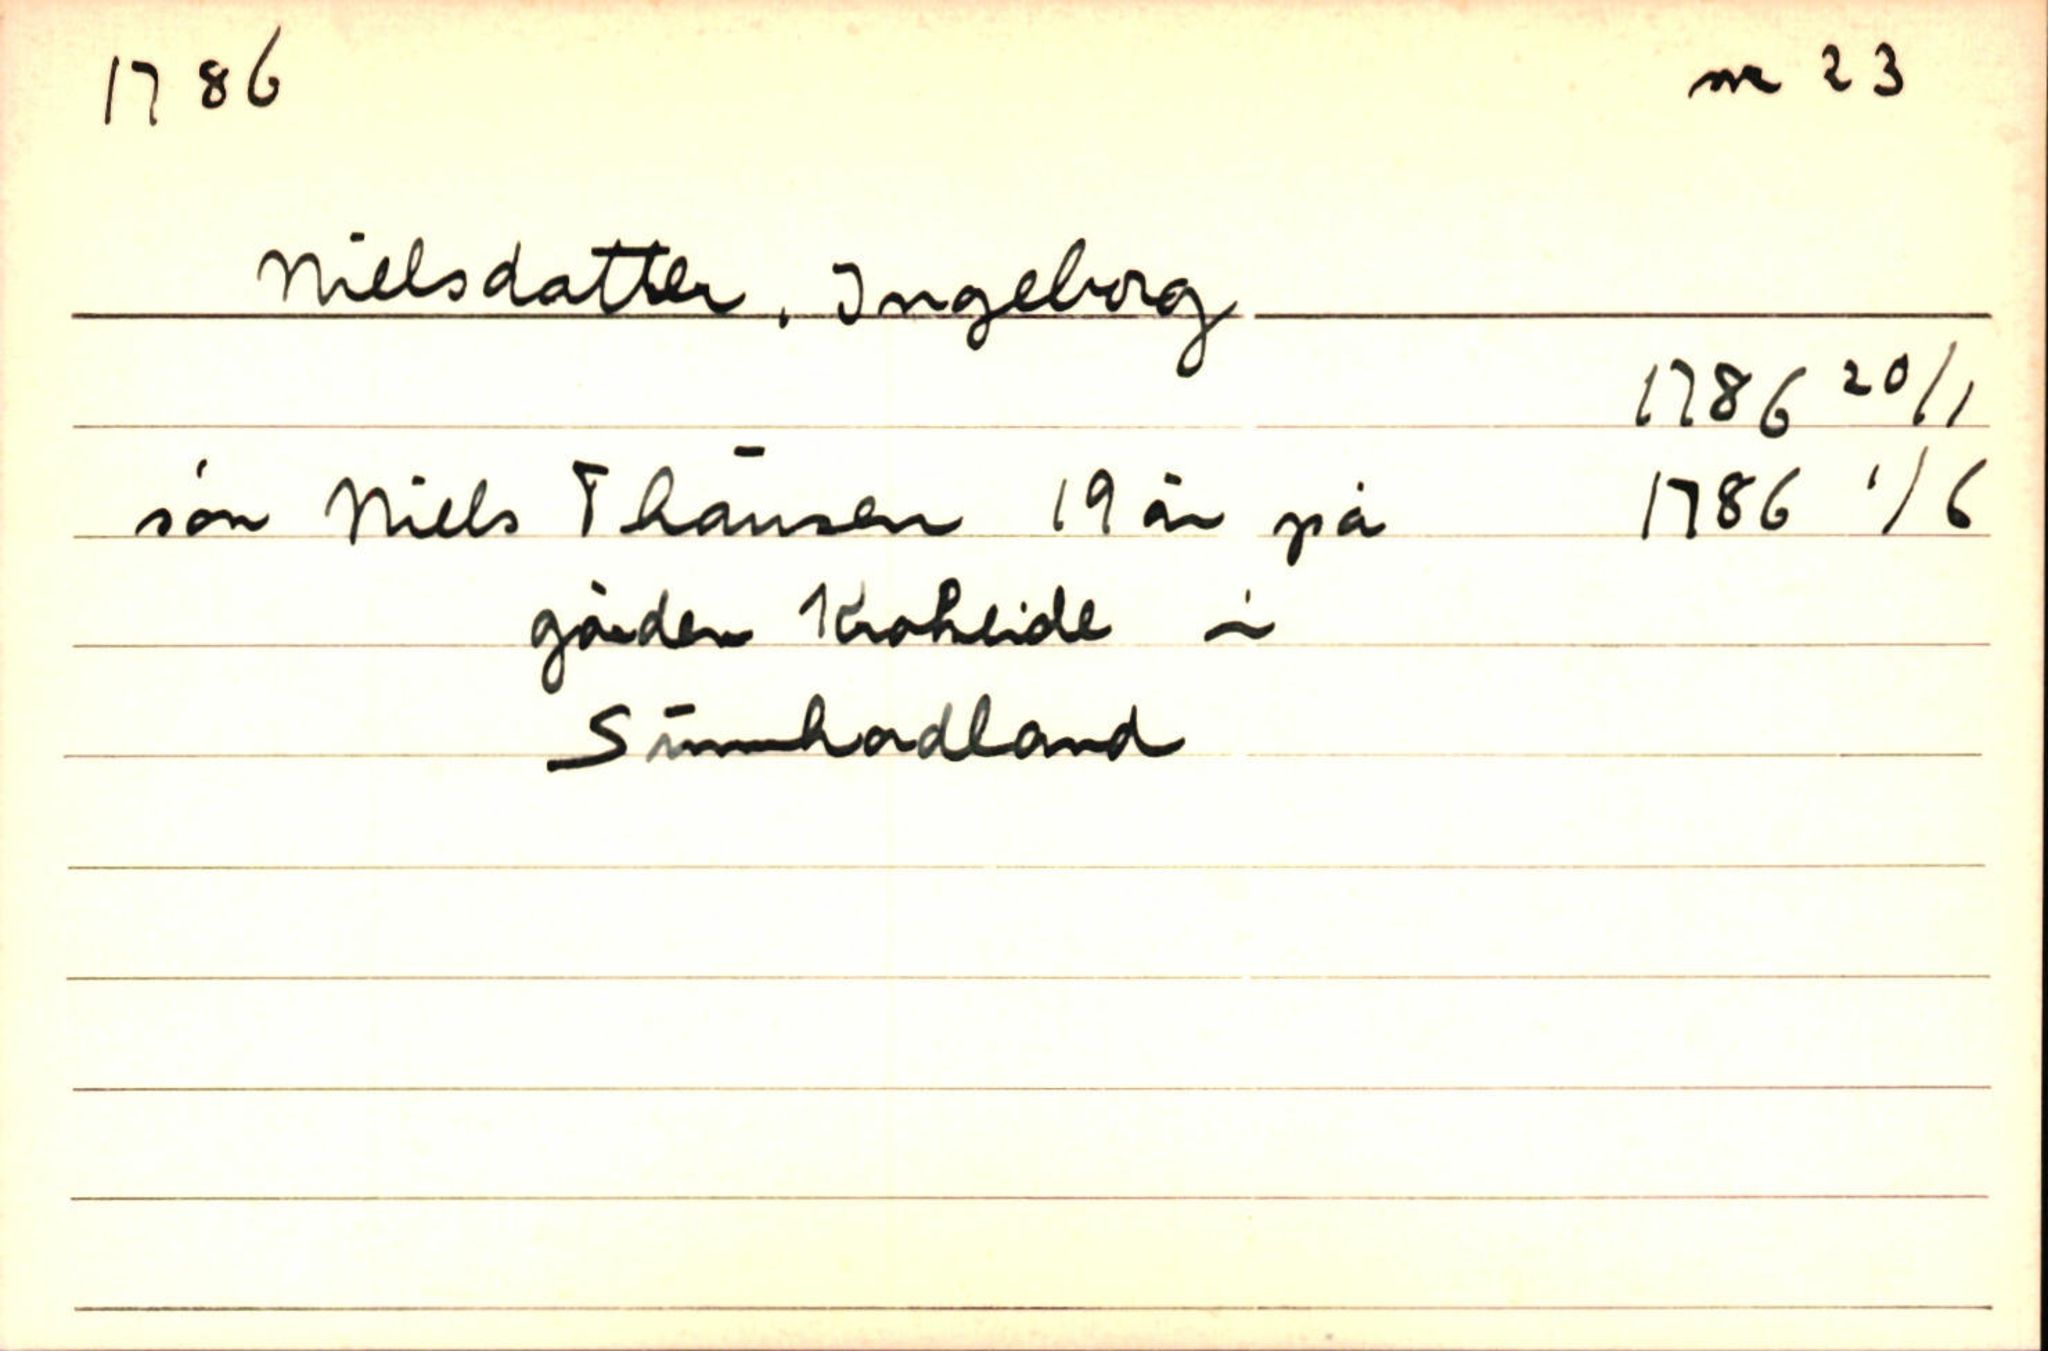 1786 nr 23
Nielsdatter, Ingeborg
1786 20/1
søn Niels Thausen 19 år på 1786 1/6
gården Krokeide i
Sunnhordland